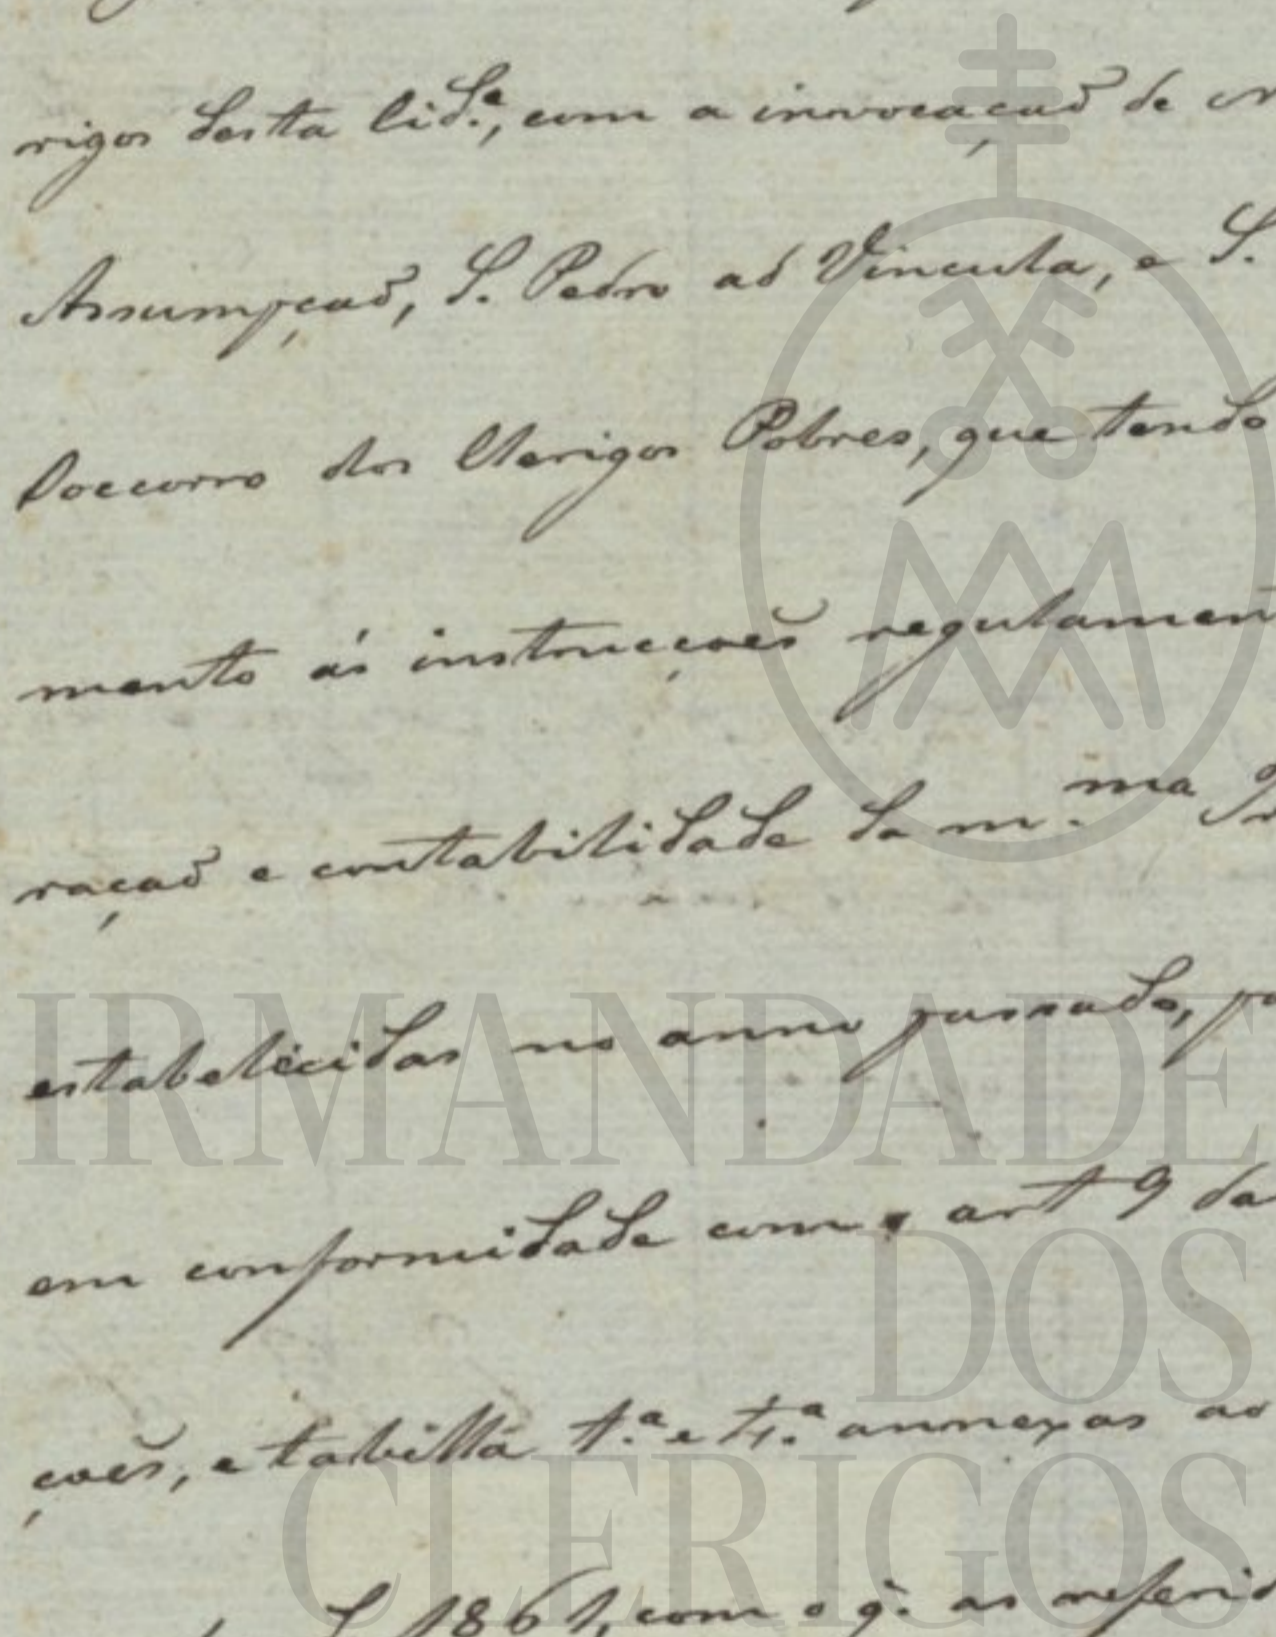 rigos desta Cid.e, com a invocação de
Assumpção, S. Pedro ad Vincula, e S.
Soccorro dos Clerigos Pobres, que tendo
mento ás instrucções regulamen
ração e contabilidade da m.ma
estabelecidas no anno passado, po
em conformidade com o art 9 da
ções, e tabella 1.a e 4.a annexas ao
1861, com o q. as referid
IRMANDADE
DOS
CLERIGOS